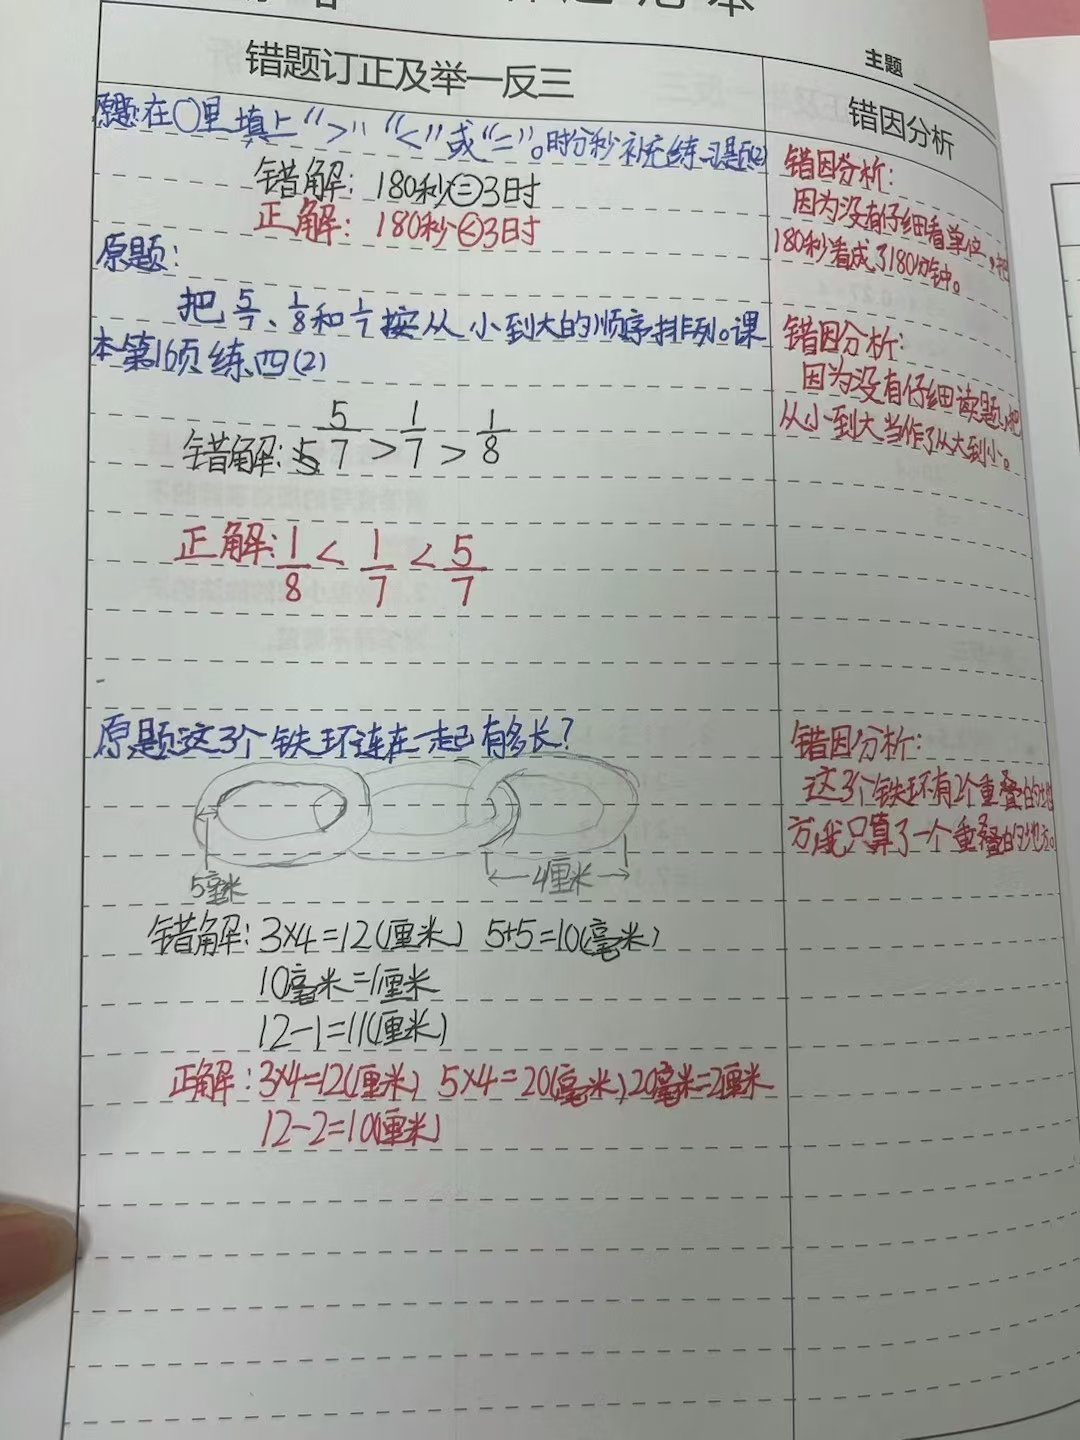 主题
错题订正及举一反三
错因分析
原题:在○里填上“>”“<”或“=”。时分秒补充练习题(2)
错解: 180秒=3时
正解: 180秒<3时
错因分析:
因为没有仔细看单位,把
180秒看成了180分钟。
原题:
把5/7、1/8和1/7按从小到大的顺序排列。课
本第16页练四(2)
错解: 5/7>1/7>1/8
正解: 1/8<1/7<5/7
错因分析:
因为没有仔细读题,把
从小到大当作了从大到小。
原题:这3个铁环连在一起有多长?
5毫米
4厘米
错解: 3×4=12(厘米) 5+5=10(毫米)
10毫米=1厘米
12-1=11(厘米)
正解: 3×4=12(厘米) 5×4=20(毫米) 20毫米=2厘米
12-2=10(厘米)
错因分析:
这3个铁环有2个重叠的地
方,我只算了一个重叠的地方。